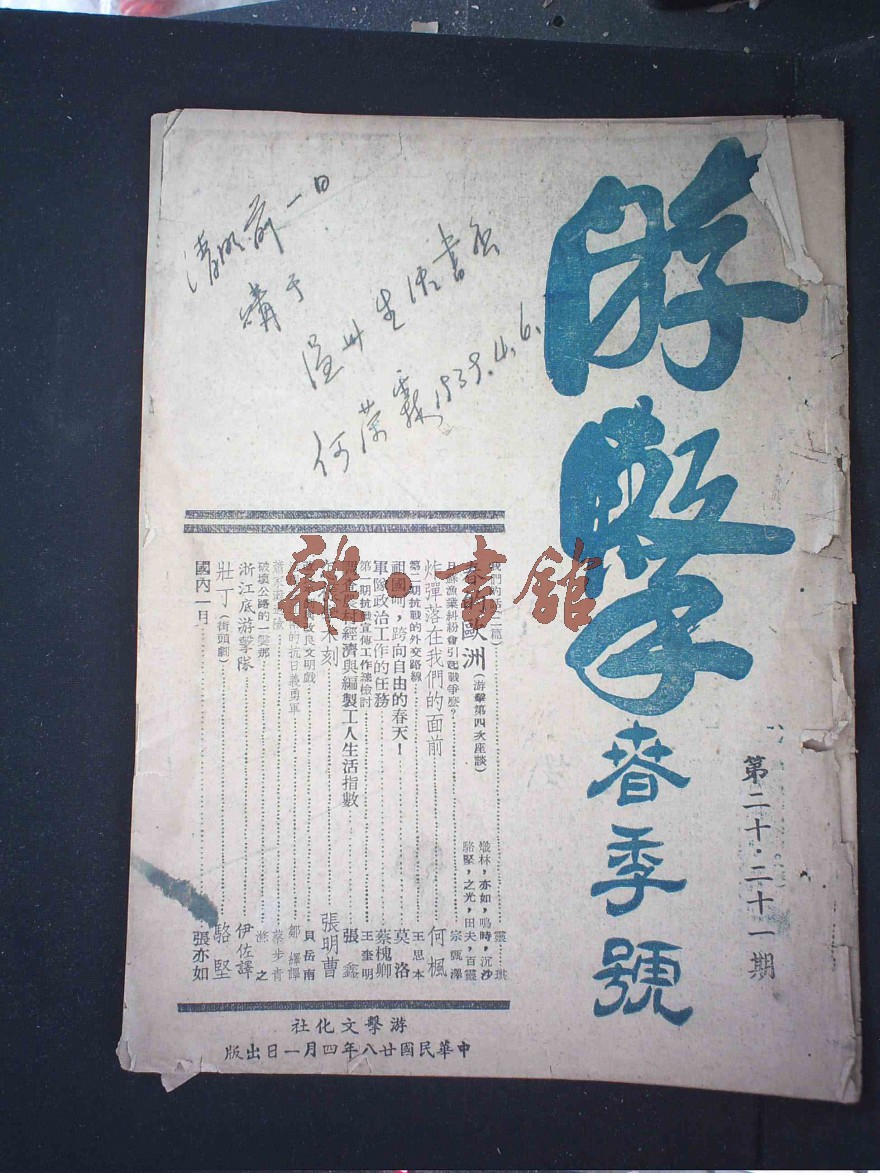 游擊
春季號
第二十·二十一期
清明前一日
購于
溫州生活書店
何荣霖 1939.4.6.
春的歐洲(游擊第四次座談) 燉林,亦如,鳴時,沉沙 駱堅,之光,田夫,百靈
日蘇漁業糾紛會引起戰爭麼? 宗甄澤
炸彈落在我們的面前 何楓
第二期抗戰的外交路線 王思本
祖國呵,跨向自由的春天! 莫洛
軍隊政治工作的任務 蔡槐卿
第一期抗戰宣傳工作總檢討 王奎明
經濟與編製工人生活指數 張鑫
木刻 張明曹
改良文明戲 貝岳南
的抗日義勇軍 鄒繹譯
蔡步青
破壞公路的一剎那 之
浙江底游擊隊 伊佐譯
壯丁(街頭劇) 駱堅
國內一月 張亦如
游擊文化社
中華民國廿八年四月一日出版
雜·書館